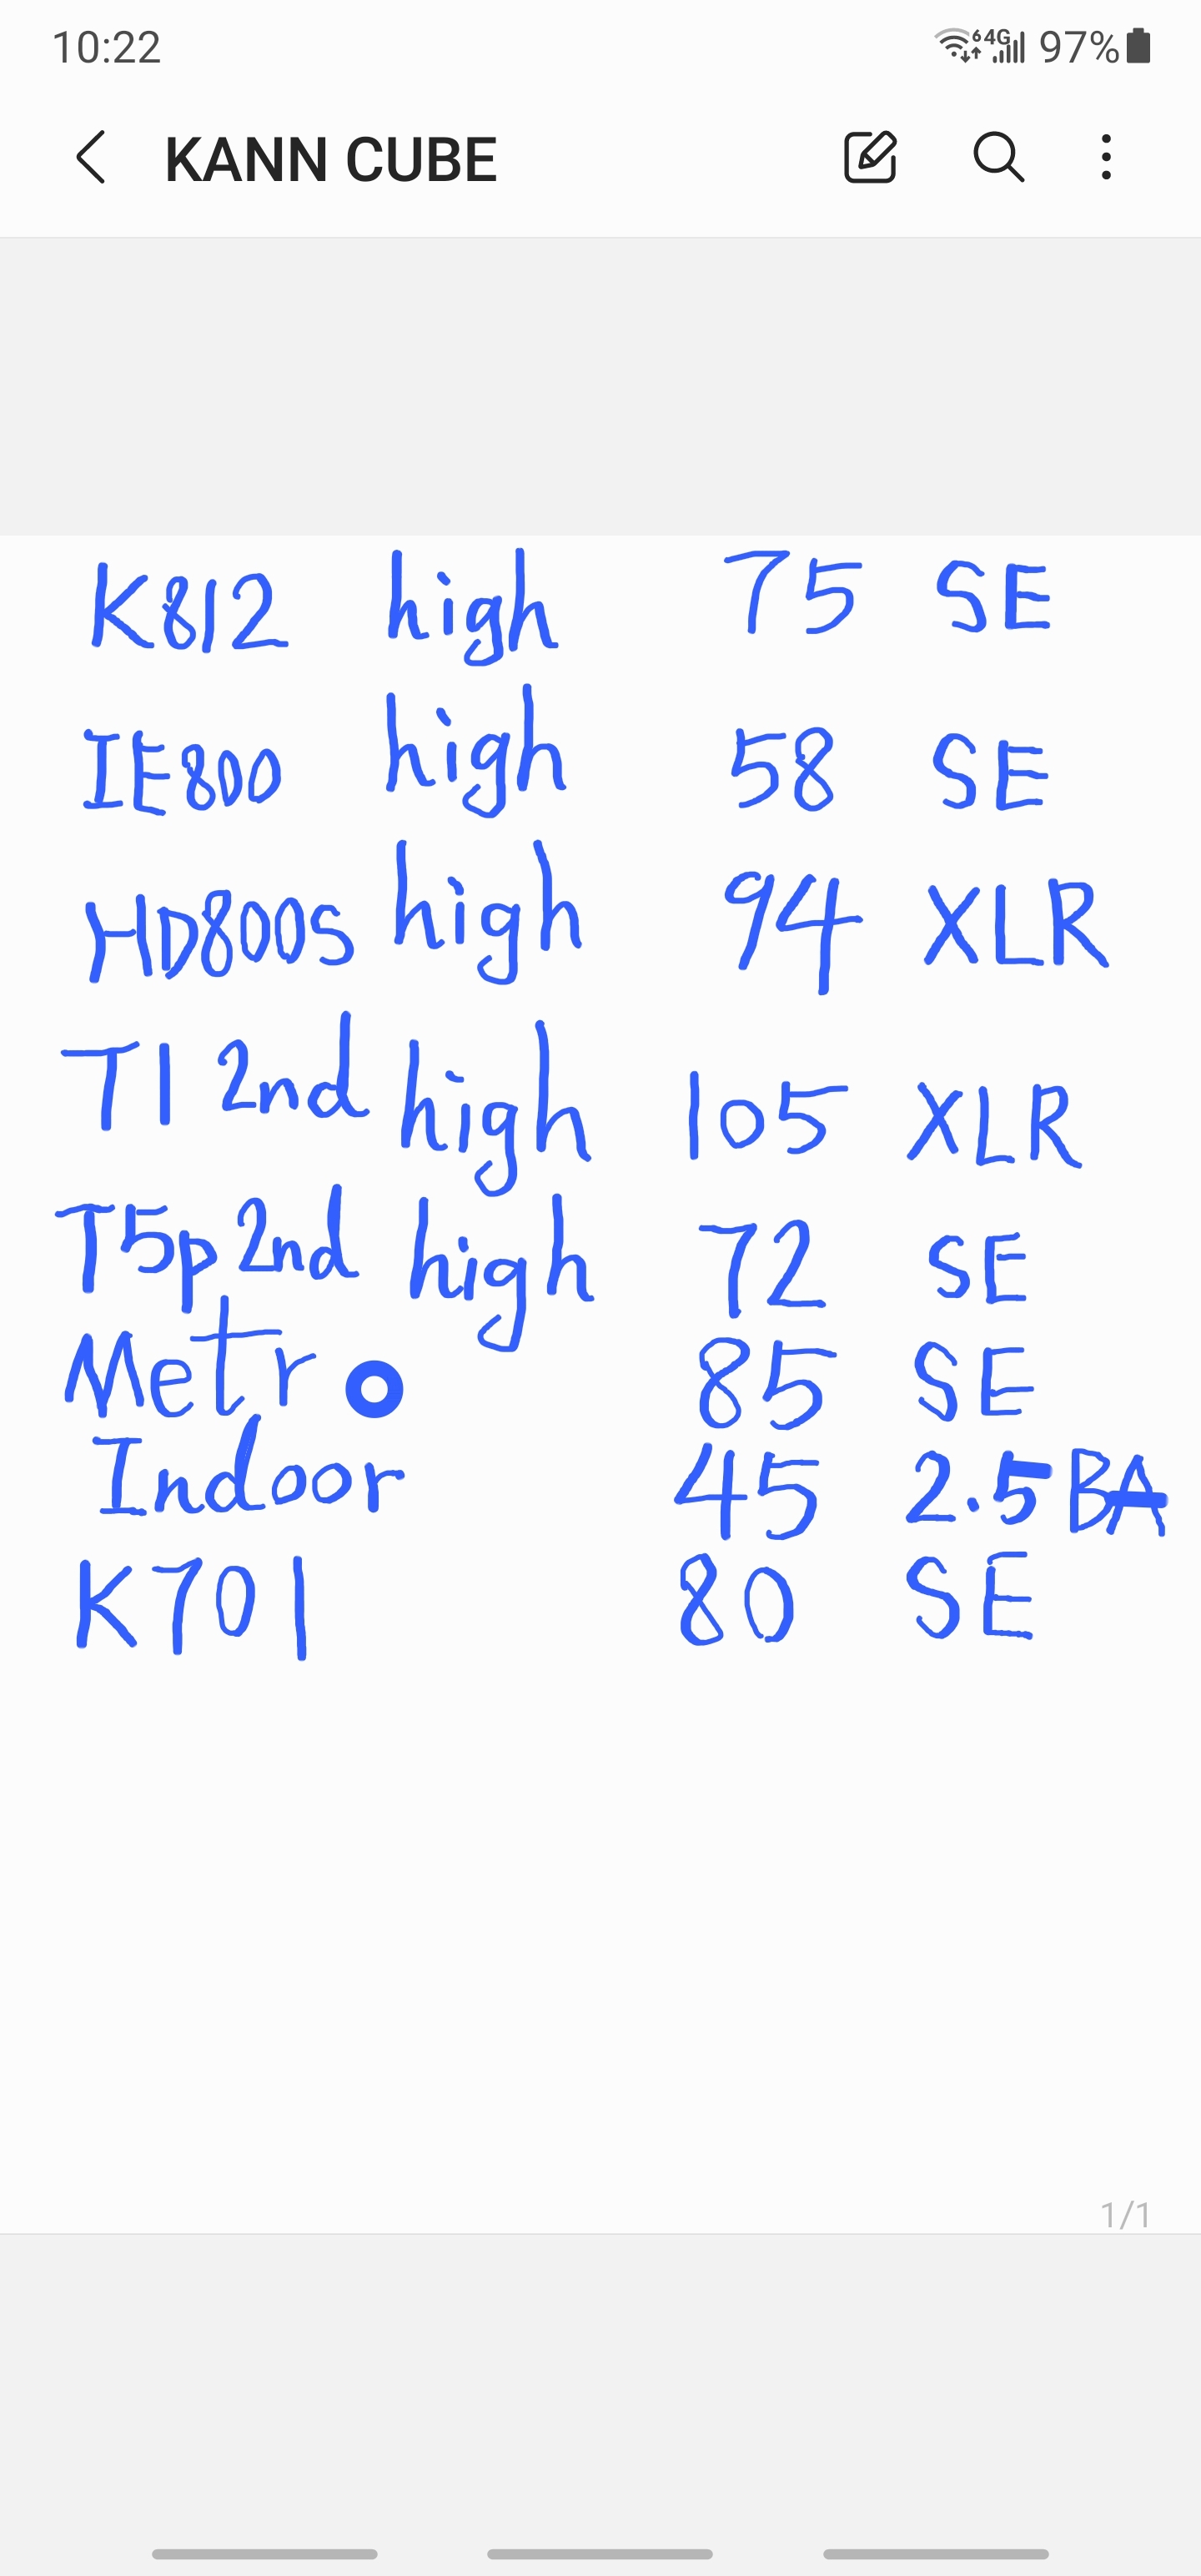 10:22 6 4G 97%
KANN CUBE
K812 high 75 SE
IE800 high 58 SE
HD800S high 94 XLR
T1 2nd high 105 XLR
T5p 2nd high 72 SE
Metro 85 SE
Indoor 45 2.5 BA
K701 80 SE
1/1